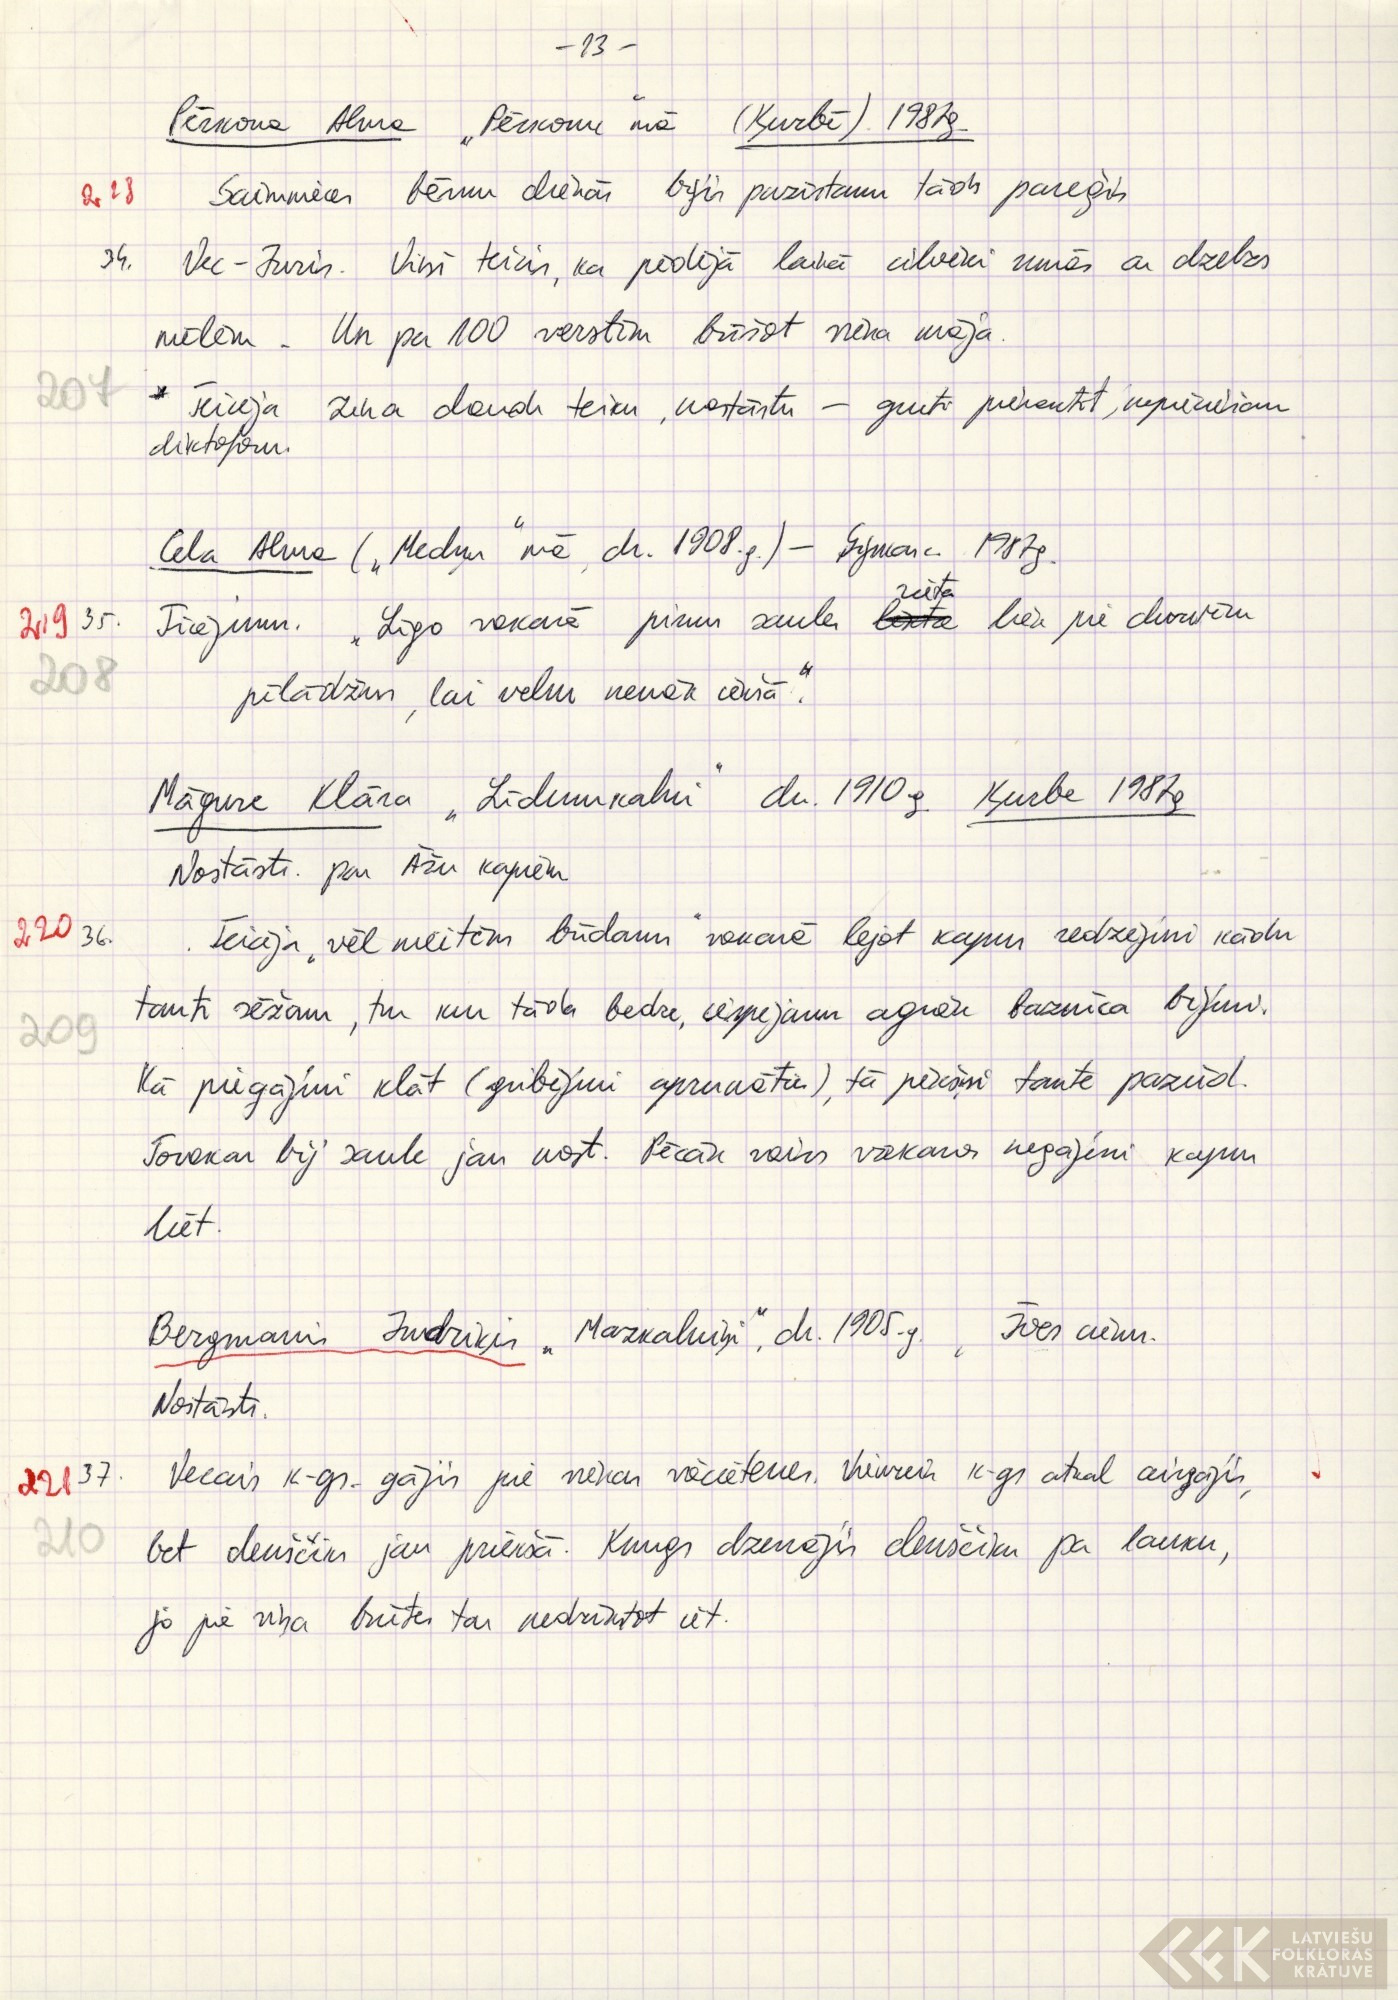 - 13 -
Pērkona Alma „Pērkoni" mā (Ķurbē) 1987g.
218 Saimnieces bērnu dienās bijis pazīstams tāds pareģis
34. Vec-Juris. Viņš teicis, ka pēdējā laikā cilvēki runās ar dzelzs
mēlēm. Un pa 100 verstīm būšot viena māja.
207 * Teicēja zina daudz teiku, nostāstu - grūti pierakstīt, nepieciešams
diktofons.
Ceļa Alma („Medņu" mā, dz. 1908.g.) - 1987g.
219 35. Ticējums. „Līgo vakarā pirms saules rieta liek pie durvīm
208 pīlādžus, lai velni nenāk iekšā."
Māgure Klāra „Līdumkalni" dz. 1910g. Ķurbe 1987g
Nostāsts. par Āžu kapiem
220 36. Teicēja „vēl meitēm būdams" vakarā lejot kapus redzējusi kādu
209 tanti sēžam, tur kur tāda bedre, iespējams agrāk baznīca bijusi.
Kā piegājusi klāt (gribējusi aprunāties), tā pēkšņi tante pazūd.
Tovakar bij' saule jau nost. Pēcāk vairs vakaros negājusi kapus
liet.
Bergmanis Indriķis „Mazkalniņi", dz. 1905.g., Īves ciems.
Nostāsts.
221 37. Vecais k-gs. gājis pie vienas vācietenes. Vienreiz k-gs atkal aizgājis,
210 bet denščiks jau priekšā. Kungs dzenājis denščiku pa lauku,
jo pie viņa brūtes tas nedrīkstot iet.
LATVIEŠU
FOLKLORAS
KRĀTUVE